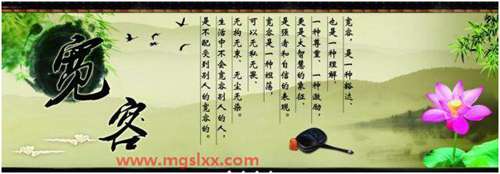 宽容
宽容，是一种豁达，
也是一种理解，
一种尊重、一种激励，
更是大智慧的象征、
是强者和自信的表现。
宽容是一种坦荡，
可以无私无畏、
无拘无束、无尘无染。
生活中不会宽容别人的人，
是不配受到别人的宽容的。
www.mgslxx.com